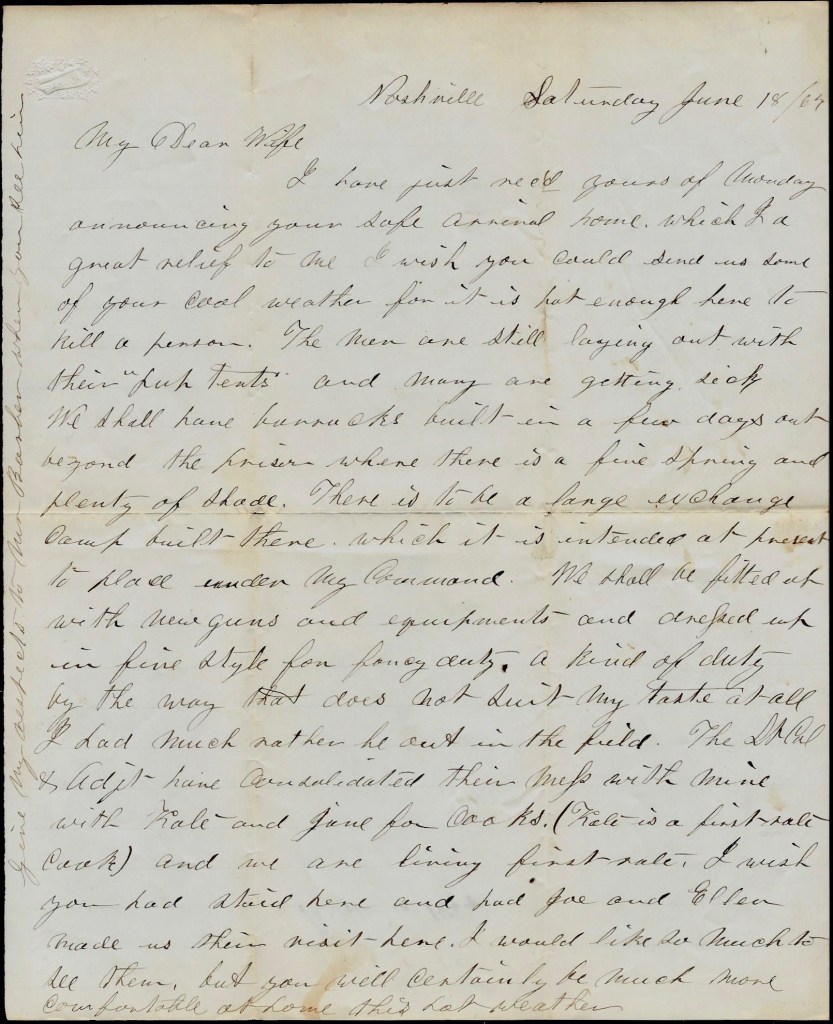 Nashville Saturday June 18/64
My Dear Wife
I have just recd yours of Monday
announcing your safe arrival home. which I a
great relief to me I wish you could send us some
of your cool weather for it is hot enough here to
kill a person. The men are still laying out with
their "pup tents" and many are getting sick
We shall have barracks built in a few days out
beyond the prison where there is a fine spring and
plenty of shade. There is to be a large exchange
Camp built there. which it is intended at present
to place under my Command. We shall be fitted up
with new guns and equipments and dressed up
in fine style for fancy duty. a kind of duty
by the way that does not suit my taste at all
I had much rather be out in the field. The Lt Col
& Adjt have consolidated their mess with mine
with Kate and Jane for Cooks. (Kate is a first-rate
Cook) and we are living first-rate. I wish
you had staid here and had Joe and Ellen
made us their visit here. I would like so much to
see them. but you will certainly be much more
comfortable at home this hot weather
Give my respects to Mr Barker when you see him